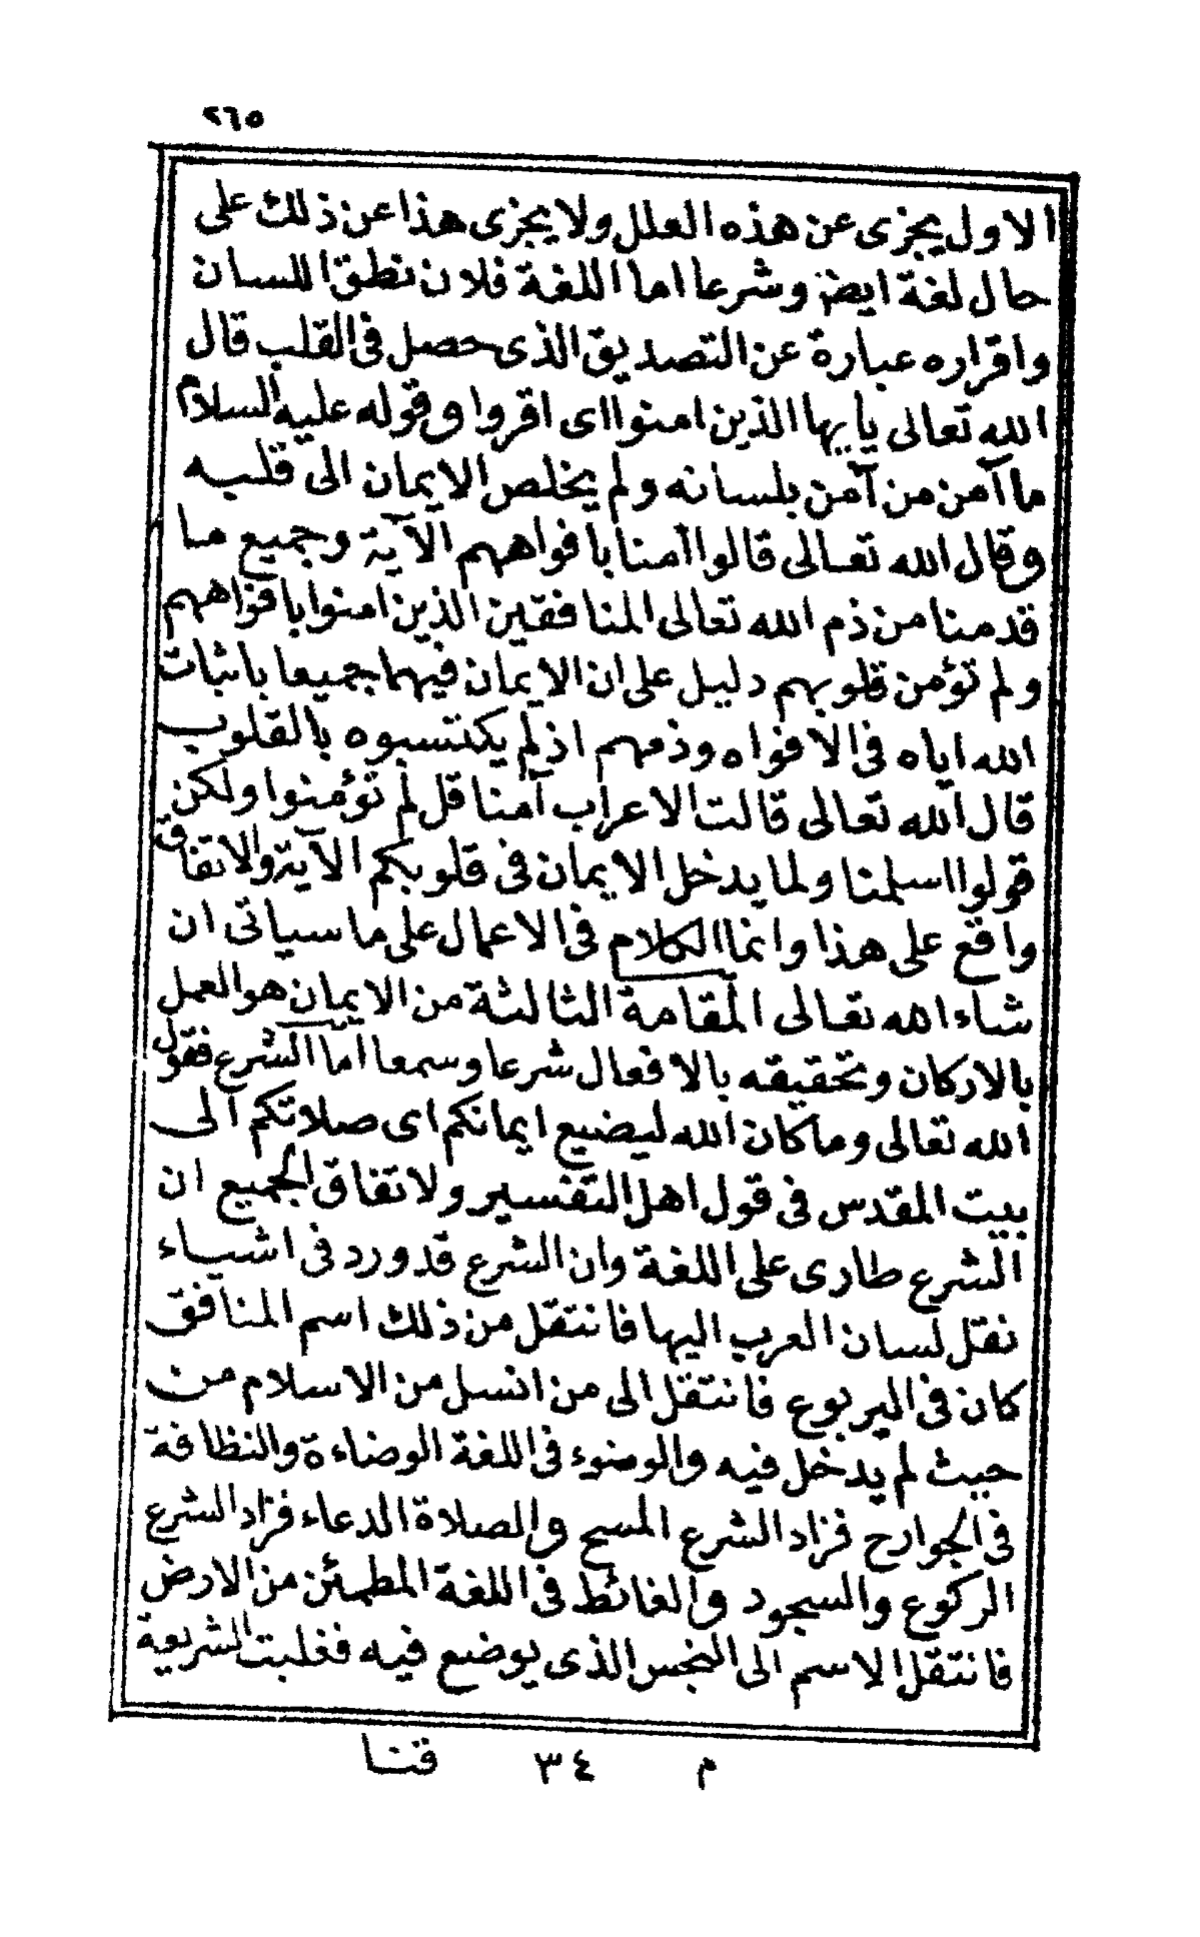 ٢٦٥
الاول يجزى عن هذه العلل ولا يجزى هذا عن ذلك على
حال لغة ايضا وشرعا اما اللغة فلان نطق اللسان
واقراره عبارة عن التصديق الذى حصل فى القلب قال
الله تعالى يأيها الذين امنوا اى اقروا وقوله عليه السلام
ما آمن من آمن بلسانه ولم يخلص الايمان الى قلبه
وقال الله تعالى قالوا آمنا بافواههم الآية وجميع ما
قدمنا من ذم الله تعالى المنافقين الذين امنوا بافواههم
ولم تؤمن قلوبهم دليل على ان الايمان فيهما جميعا باثبات
الله اياه فى الافواه وذمهم اذ لم يكتسبوه بالقلوب
قال الله تعالى قالت الاعراب آمنا قل لم تؤمنوا ولكن
قولوا اسلمنا ولما يدخل الايمان فى قلوبكم الآية والاتفاق
واقع على هذا وانما الكلام فى الاعمال على ما سياتى ان
شاء الله تعالى المقامة الثالثة من الايمان هو العمل
بالاركان وتحقيقه بالافعال شرعا وسمعا اما الشرع فقول
الله تعالى وما كان الله ليضيع ايمانكم اى صلاتكم الى
بيت المقدس فى قول اهل التفسير ولاتفاق الجميع ان
الشرع طارى على اللغة وان الشرع قد ورد فى اشياء
نقل لسان العرب اليها فانتقل من ذلك اسم المنافق
كان فى اليربوع فانتقل الى من انسل من الاسلام من
حيث لم يدخل فيه والوضوء فى اللغة الوضاءة والنظافة
فى الجوارح فزاد الشرع المسح والصلاة الدعاء فزاد الشرع
الركوع والسجود والغائط فى اللغة المطمئن من الارض
فانتقل الاسم الى النجس الذى يوضع فيه فغلبت الشريعة
م ٣٤ قتا